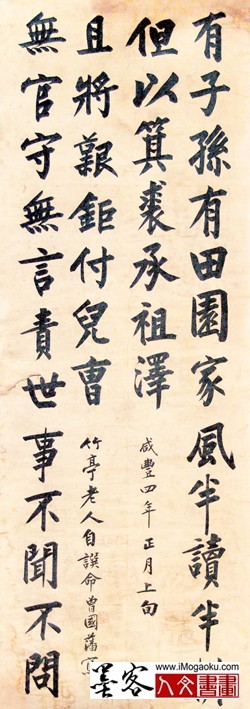 有子孫有田園家風半讀半
但以箕裘承祖澤
咸豐四年正月上旬
且將艱鉅付兒曹
竹亭老人自譔命曾國藩寫
無官守無言責世事不聞不問
www.iMogaoku.com
墨客
人文書畫